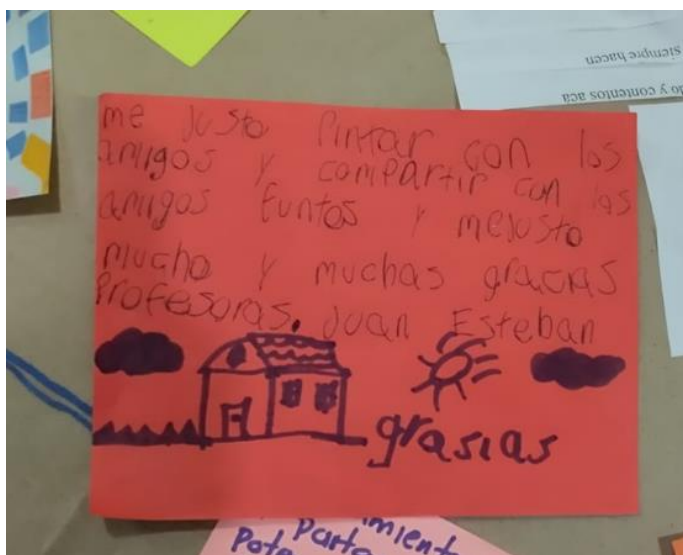 siempre hacen
do y contentos acá
me justo Pintar con los
amigos y compartir con los
amigos Funtos y mejusto
mucho y muchas gracias
Profesoras. Juan Esteban
grasias
miento
Parto
Pote